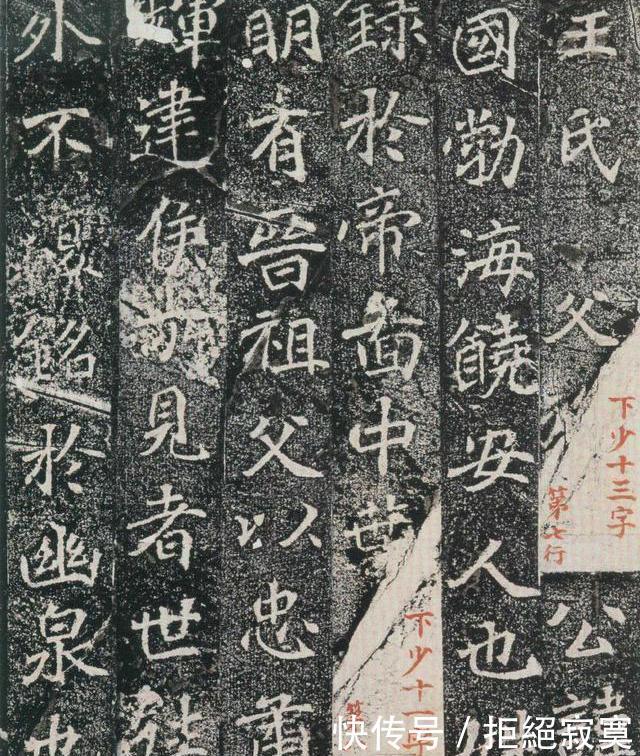 王氏 父
下少十三字
第七行
公諱
國勃海饒安人也
錄於帝啚中葉
下少十一字
明有晉祖父以忠肅
輝建侯 見者世
外不 銘於幽泉
快传号 / 拒絕寂寞